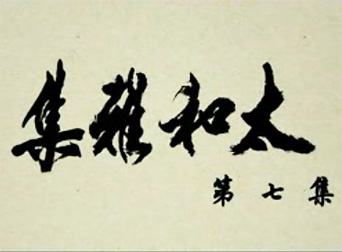 太和雅集
第七集